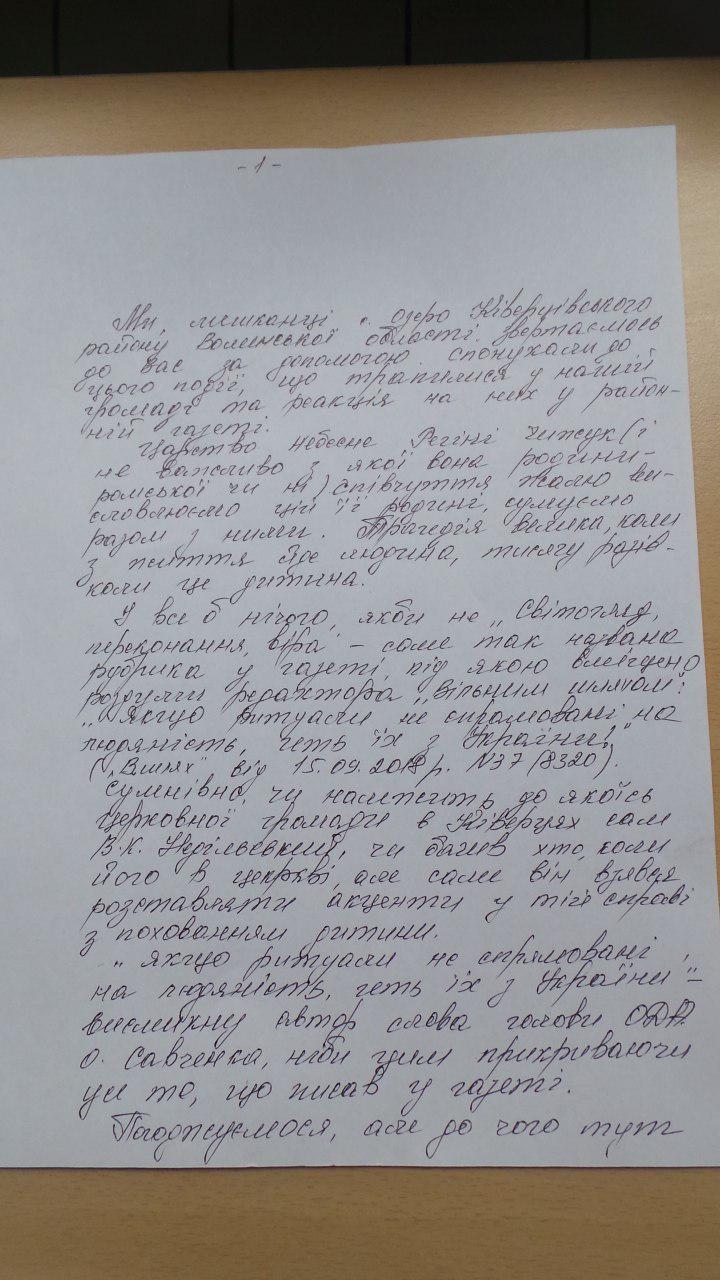 - 1 -
Ми, мешканці с. озеро Ківерцівського
району Волинської області звертаємось
до вас за допомогою спонукали до
цього події, що трапилися у нашій
громаді та реакція на них у район-
ній газеті.
Царство небесне Регіні Чижук (і
не важливо з якої вона родини-
ромської чи ні) співчуття жалю ви-
словлюємо цій її родині, сумуємо
разом з ними. Трагедія велика, коли
з життя йде людина, тисячу разів-
коли це дитина.
І все б нічого, якби не „Світогляд,
переконання, віра" – саме так названа
рубрика у газеті, під якою вміщено
роздуми редактора „Вільним шляхом":
„Якщо ритуали не спрямовані на
людяність, геть їх з України!"
(„Вшлях" від 15.09.2018р. №37 (8320).
Сумнівно, чи належить до якоїсь
церковної громади в Ківерцях сам
В.К. чи бачив хто, коли
його в церкві, але саме він взявся
розставляти акценти у тій справі
з похованням дитини.
„Якщо ритуали не спрямовані
на людяність, геть їх з України"–
висмикну автор слова голови ОДА
О. Савченка, ніби цим прикриваючи
усе то, що писав у газеті.
Погоджуємося, але до чого тут